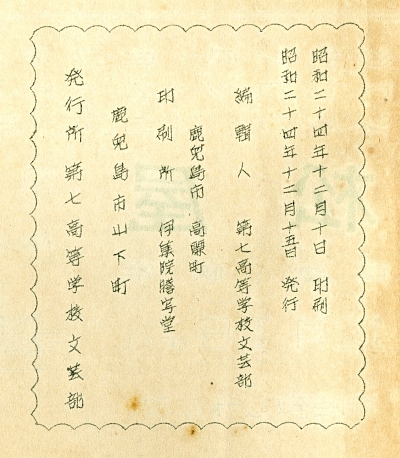 昭和二十四年十二月十日 印刷
昭和二十四年十二月十五日 発行
編輯人 第七高等学校文芸部
鹿児島市 高麗町
印刷所 伊集院謄写堂
鹿児島市山下町
発行所 第七高等学校文芸部